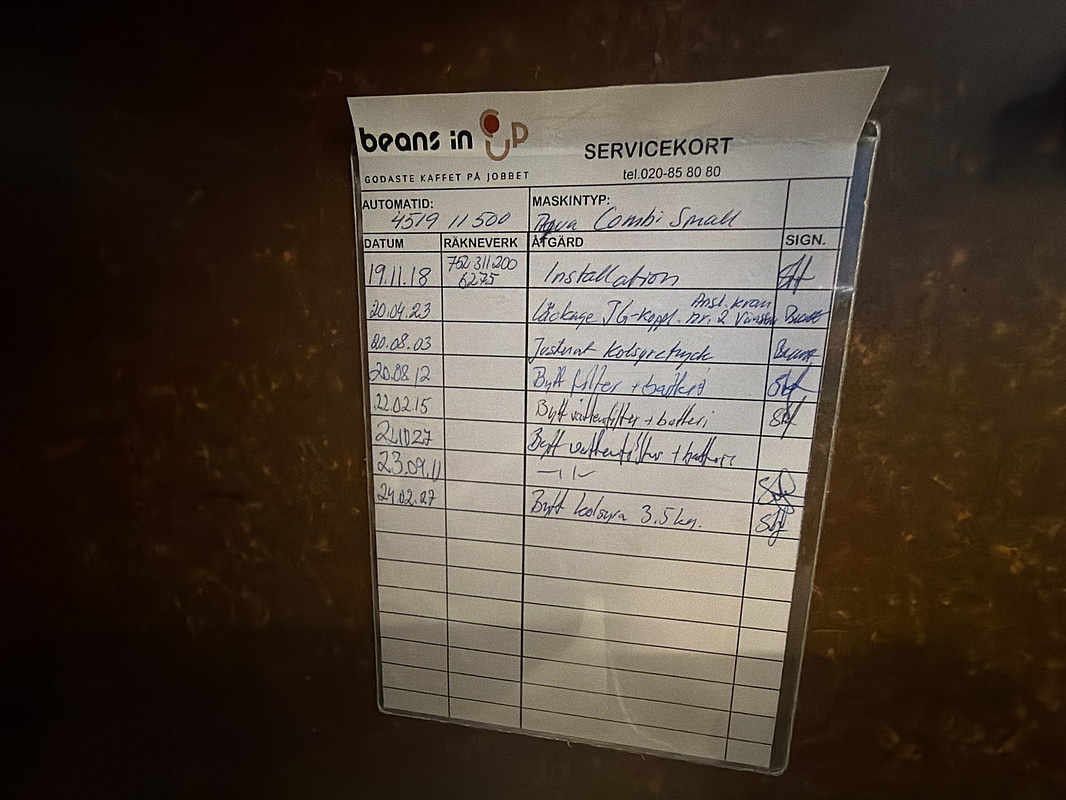 beans in cup
GODASTE KAFFET PÅ JOBBET
SERVICEKORT
tel.020-85 80 80
AUTOMATID:
4519 11 500
MASKINTYP:
Aqua Combi Small
DATUM RÄKNEVERK ÅTGÄRD SIGN.
19.11.18 752 311 200 6275 Installation
20.04.23 läckage JG-koppl. Ansl. kran nr. 2 vänster
20.08.03 Justerat kolsyretryck
20.08.12 Bytt filter + batteri
22.02.15 Bytt vattenfilter + batteri
Bytt vattenfilter + batteri
23.09.11 -11-
24.02.27 Bytt kolsyra 3.5 kg.